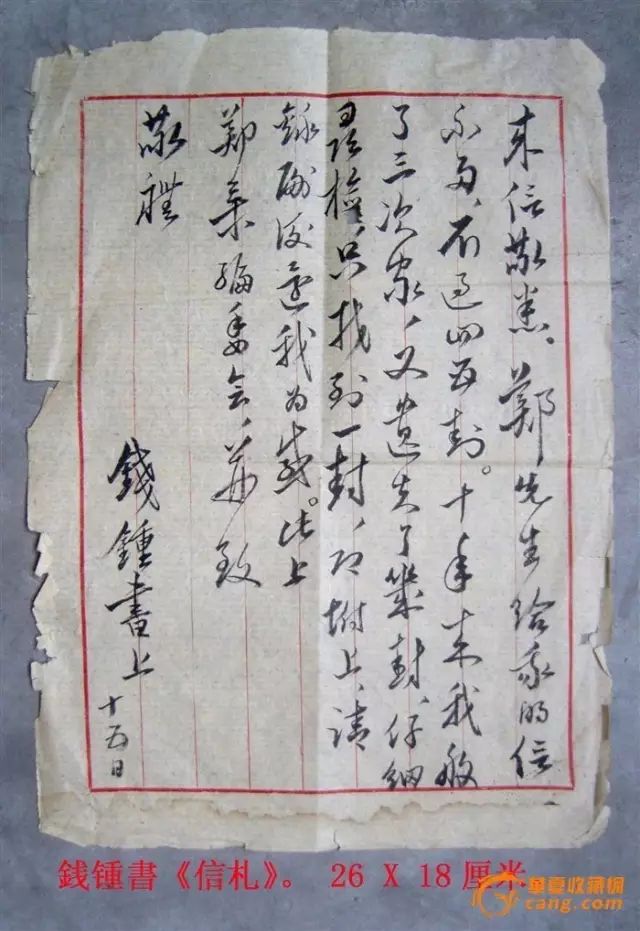 来信敬悉、鄭先生给我的信
不多、不过四五封。十年来我般
了三次家、又遗失了幾封、仔细
寻检、只找到一封、附上、请
録副後還我为感。此上
郑集编委会、并致
敬禮
錢鍾書上 十五日
錢锺書《信札》。 26 X 18厘米
華夏收藏網
cang.com